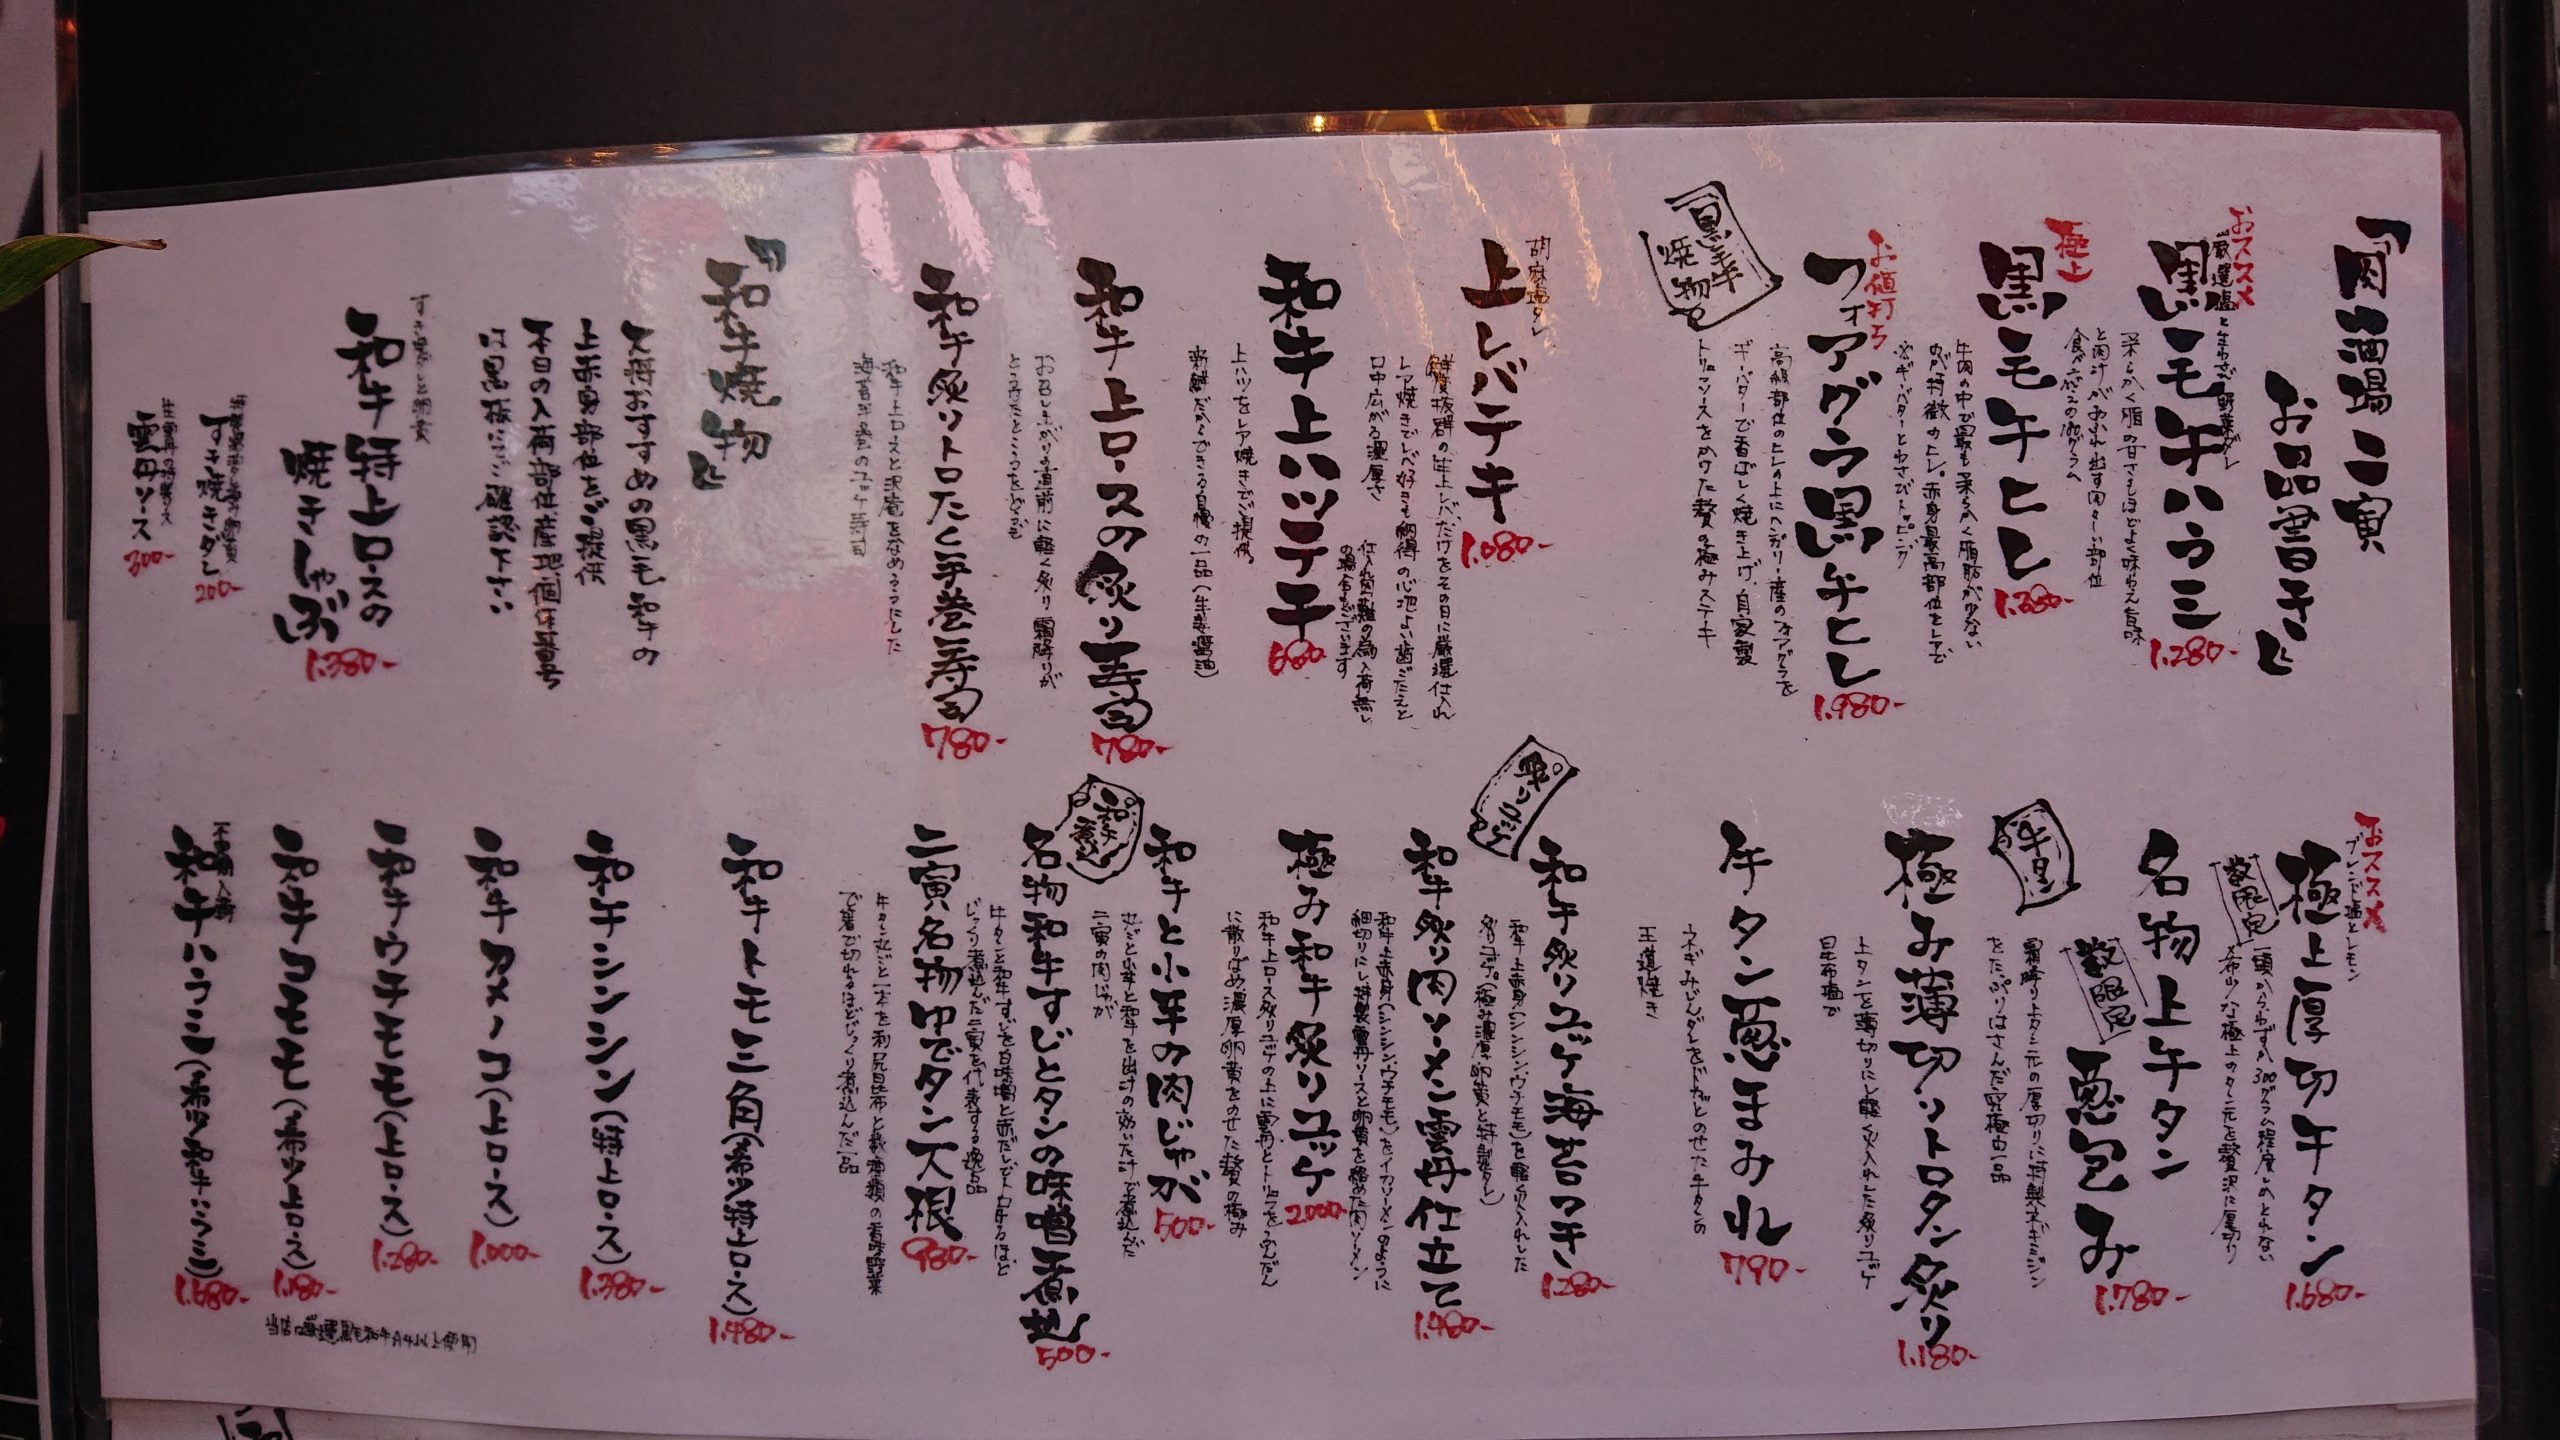 『肉酒場 二寅
お品書き』
おススメ
黒毛牛ハラミ
1.280-
厳選塩とまわさび 野菜ダレ
柔らかく脂の甘さもほどよく味わえ旨味
と肉汁があふれ出す肉々しい部位
極上
黒毛牛ヒレ
牛肉の中で最も柔らかく脂肪が少ない
のが特徴のヒレ。赤身最高部位をレアで
ネギ・バターとわさびトッピング
お値打ち
フォアグラ黒牛ヒレ
1.980-
高級部位のヒレの上にハンガリー産のフォアグラを
ネギ・バターで香ばしく焼き上げ、自家製
トリュフソースをかけた贅の極みステーキ
黒毛牛
焼物
胡麻塩ダレ
上レバテキ
鮮度抜群の牛上レバーだけをその日に厳選仕入れ
レア焼きでレバ好きも納得の心地よい歯ごたえと
口中広がる濃厚さ
仕入れ困難の為入荷無し
の場合もございます
和牛上ハツテキ
680
上ハツをレアで焼きご提供。
新鮮だからできる自慢の一品(生姜醤油)
和牛上ロースの炙り寿司
780-
お召し上がり直前に軽く炙り霜降りが
とろけたところをどうぞ
和牛炙りトロたく手巻寿司
780-
和牛上ロースと沢庵をなめろうにした
海苔手巻のユッケ寿司
『和牛焼物』
大将おすすめの黒毛和牛の
上赤身部位をご提供
本日の入荷部位、産地、個体番号
は黒板にてご確認下さい
すき焼ダレと卵黄
和牛特上ロースの
焼きしゃぶ
1.380-
すき焼きダレ
200-
雲丹ソース
300-
おススメ
ブレンド塩とレモン
極上厚切牛タン
1.680-
数限定
一頭からわずか300グラム程度しかとれない
希少な極上のタン元を贅沢に厚切り
名物上牛タン
葱包み
1.780-
数限定
霜降り上タン元の厚切りに特製ネギミジン
をたっぷりはさんだ究極の一品
牛タン
極み薄切りトロタン炙り
1.180-
上タンを薄切りにし軽く火入れした炙りユッケ
昆布塩で
牛タン葱まみれ
790-
ネギみじんダレをドカッとのせた牛タンの
王道焼き
和牛炙りユッケ海苔ロキ
1.280-
和牛上赤身(シンシン、ウチモモ)を軽く火入れした
炙りユッケ。(極み濃厚卵黄と特製タレ)
炙りユッケ
和牛炙り肉ソーメン雲丹仕立て
1.480-
和牛上赤身(シンシン、ウチモモ)をイカソーメンのように
細切りにし特製雲丹ソースと卵黄を絡めた肉ソーメン
極み和牛炙りユッケ
2000-
和牛上ロース炙りユッケの上に雲丹とトリュフをふんだん
に散りばめ、濃厚卵黄をのせた贅の極み
和牛と小芋の肉じゃが
500-
丸ごと小芋と和牛を出汁の効いた汁で煮込んだ
二寅の肉じゃが
和牛
煮込
名物和牛すじとタンの味噌煮込
500-
牛タンと和牛すじを白味噌と赤だしでトロけるほど
じっくり煮込んだ二寅を代表する逸品
二寅名物ゆでタン大根
980-
牛タン丸ごと一本を利尻昆布と数種類の香味野菜
で箸で切れるほどじっくり煮込んだ一品
和牛トモ三角(希少特上ロース)
1.480-
和牛シンシン(特上ロース)
1.380-
和牛カメノコ(上ロース)
1.000-
和牛ウチモモ(上ロース)
1.280-
和牛コモモ(希少上ロース)
1.180-
不定期入荷
和牛ハラミ(希少和牛ハラミ)
1.680-
当店は厳選黒毛和牛A4以上使用